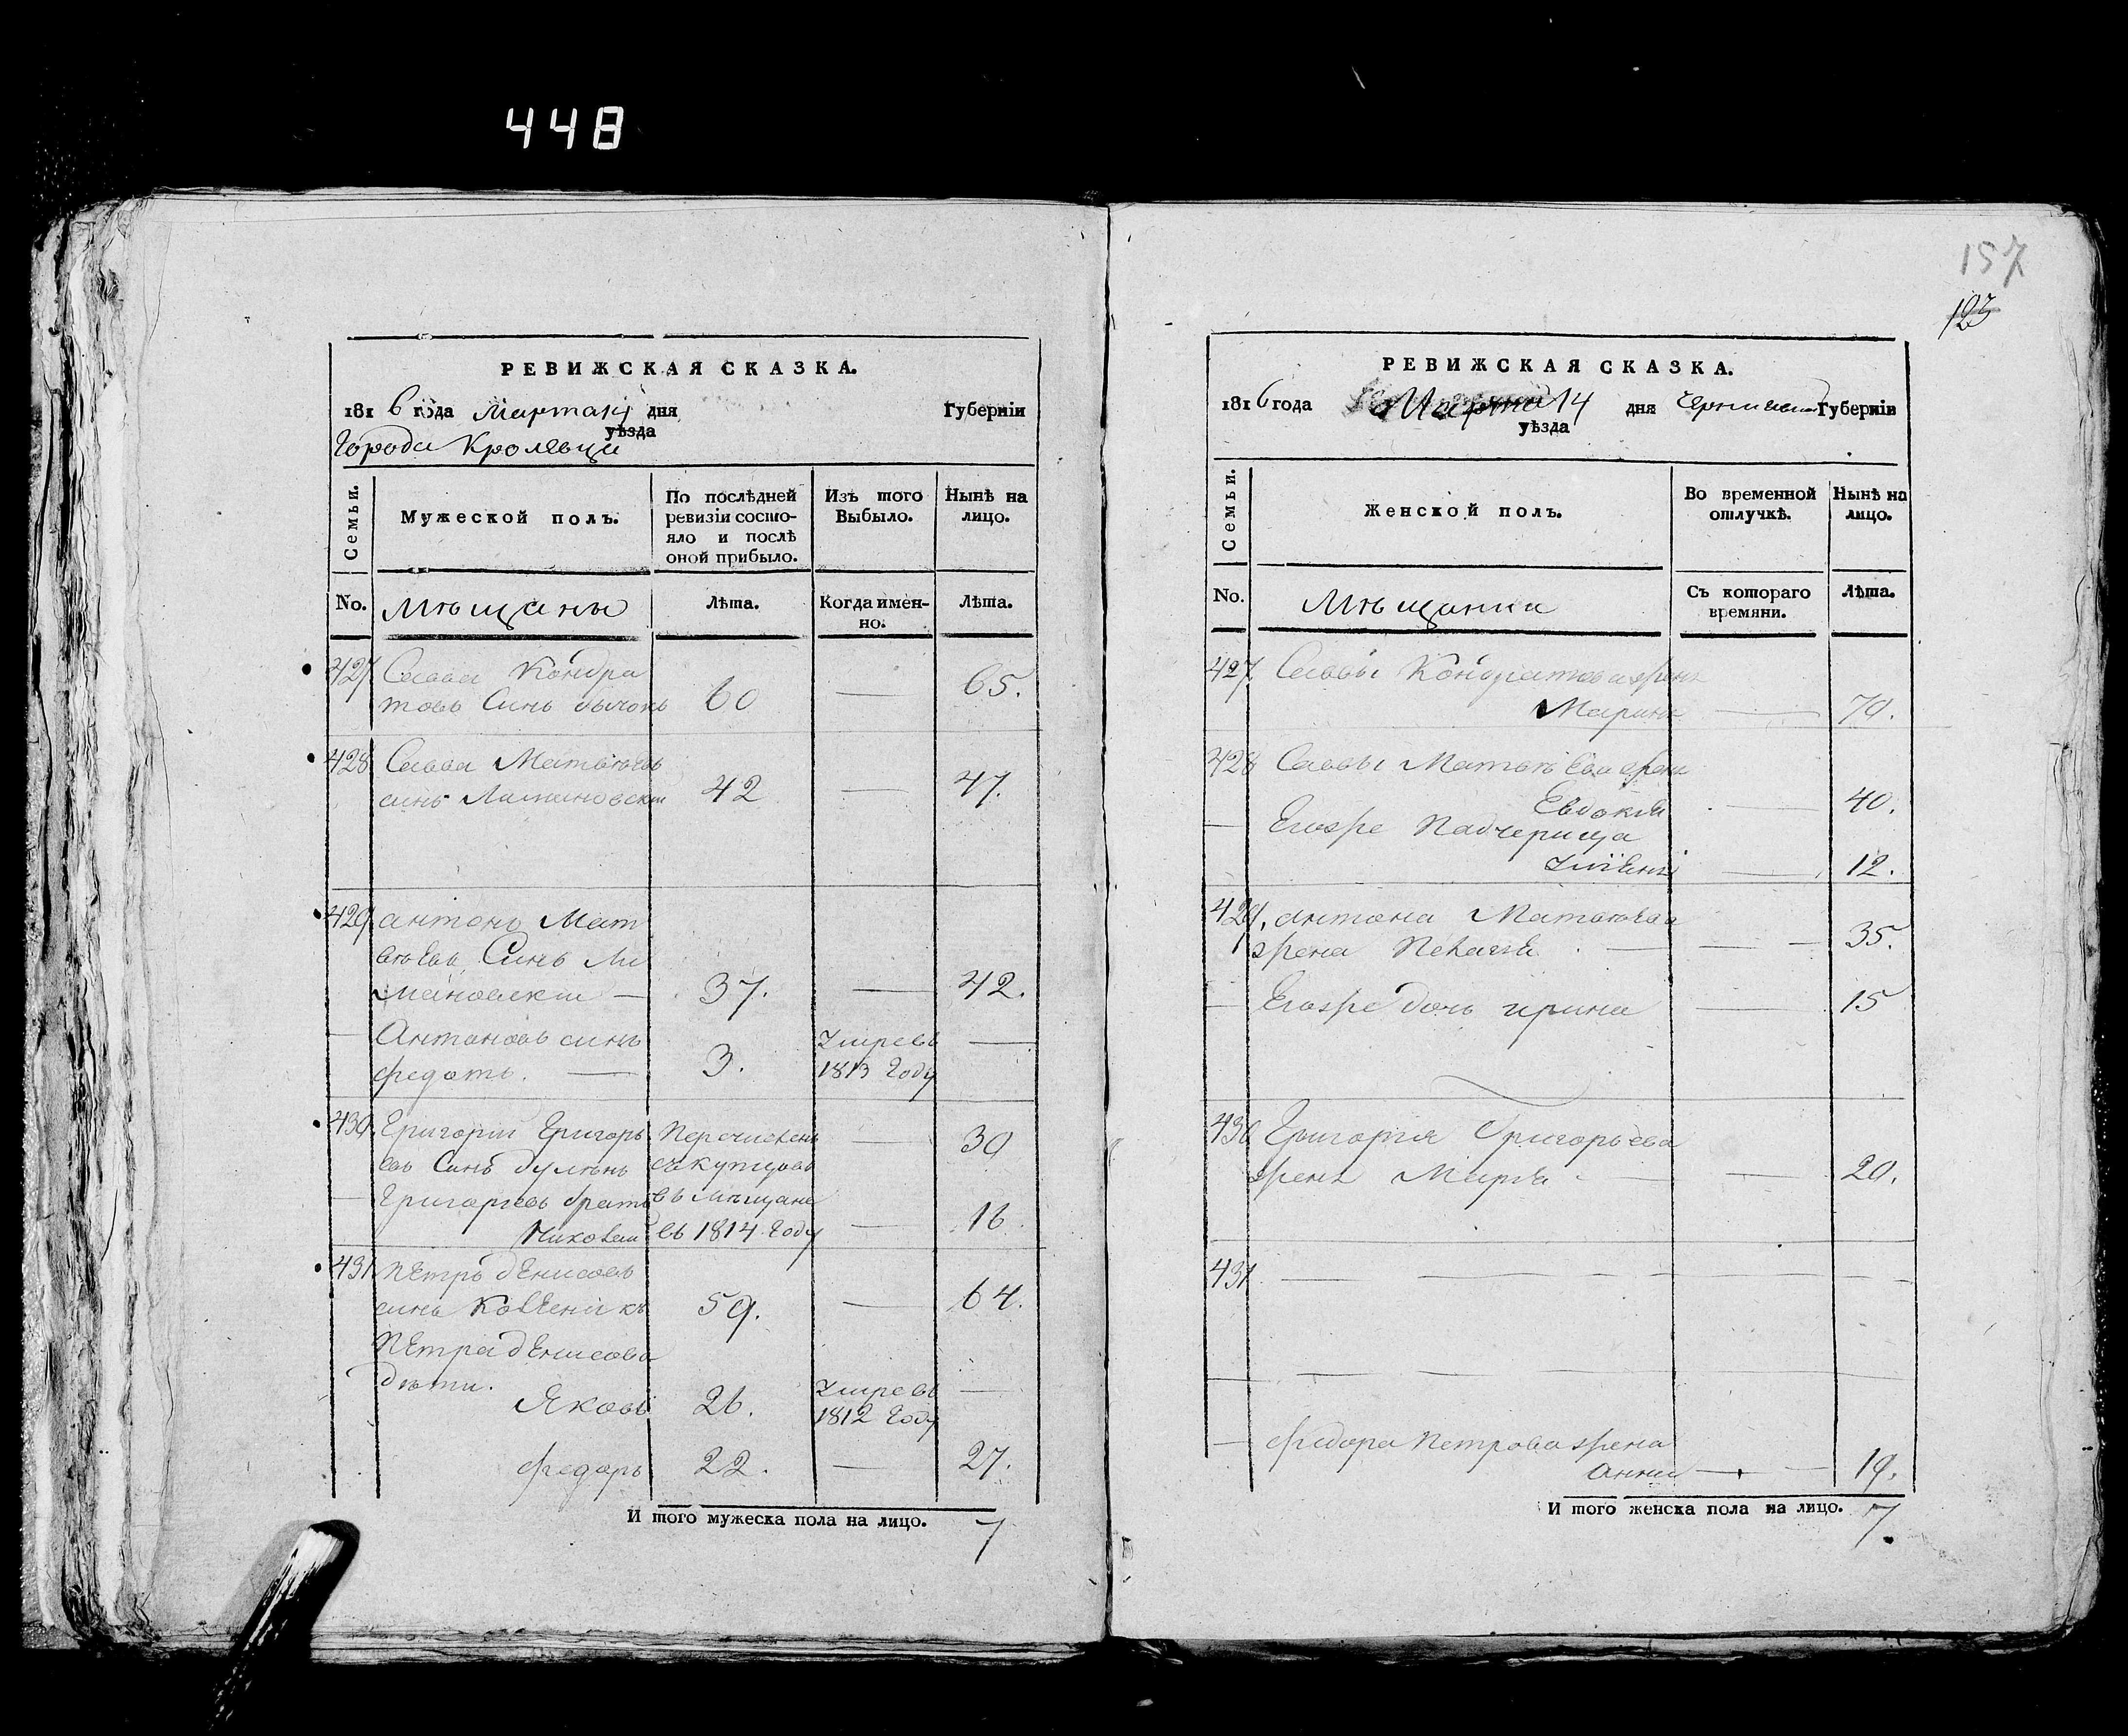 448
РЕВИЖСКАЯ СКАЗКА.
1816 года Марта дня Губернїи
уѣзда
Города Кролевца
Семьи.
Мужеской полъ.
По послѣдней ревизїи состо-
яло и послѣ оной прибыло.
Изъ того Выбыло.
Нынѣ на лицо.
No.
Мѣщаны
Лѣта.
Когда имен-
но.
Лѣта.
427 Савва Кондра
товъ Синъ 60 — 65.
428 Савва Матвѣевъ
синъ 42 — 47.
429 антонъ Мат
вѣевъ Синъ Ли
мановскии — 37. — 42.
— Антоновъ синъ Умре въ —
федотъ. — 3. 1813 Году
430. Григории Григорь Перечисленъ — 30
евъ Синъ съ купцовъ
— Григориевъ братъ въ мѣщане
Николаи въ 1814 Году — 16.
431 пЕтръ дЕнисовъ
синъ 59. — 64.
пЕтра дЕнисова
дѣти.
Яковъ 26. Умре въ —
1812 Году
федоръ 22. — 27.
И того мужеска пола на лицо. 7
157
123
РЕВИЖСКАЯ СКАЗКА.
1816 года Марта 14 дня Губернїи
уѣзда
Семьи.
Женской полъ.
Во временной отлучкѣ.
Нынѣ на лицо.
No.
Мѣщанки
Съ котораго времяни.
Лѣта.
427. Саввы Кондратова жена
Марина — 70.
428 Саввы Матвѣева жена
Евдокия — 40.
— Егожъ Падчерица
— 12.
429. антона Матвѣева
жена Пелагея — — 35.
— Егоже дочь ирина — 15
430 Григория Григорьева
жена Мария — — 20.
431 — — — —
— федора петрова жена
анна — — 19.
И того женска пола на лицо. 7.